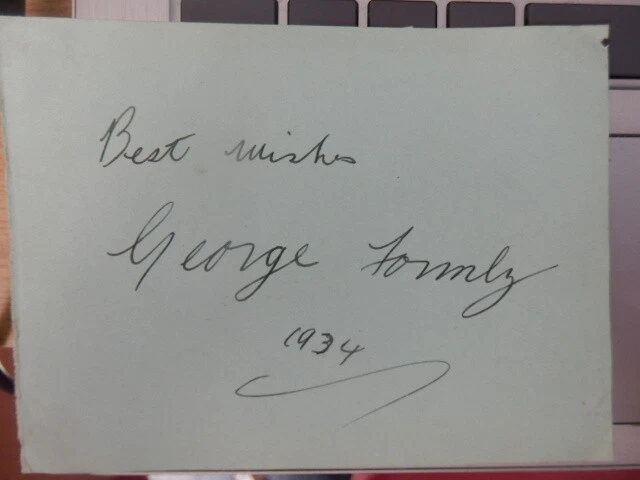 Best wishes
George Formby
1934